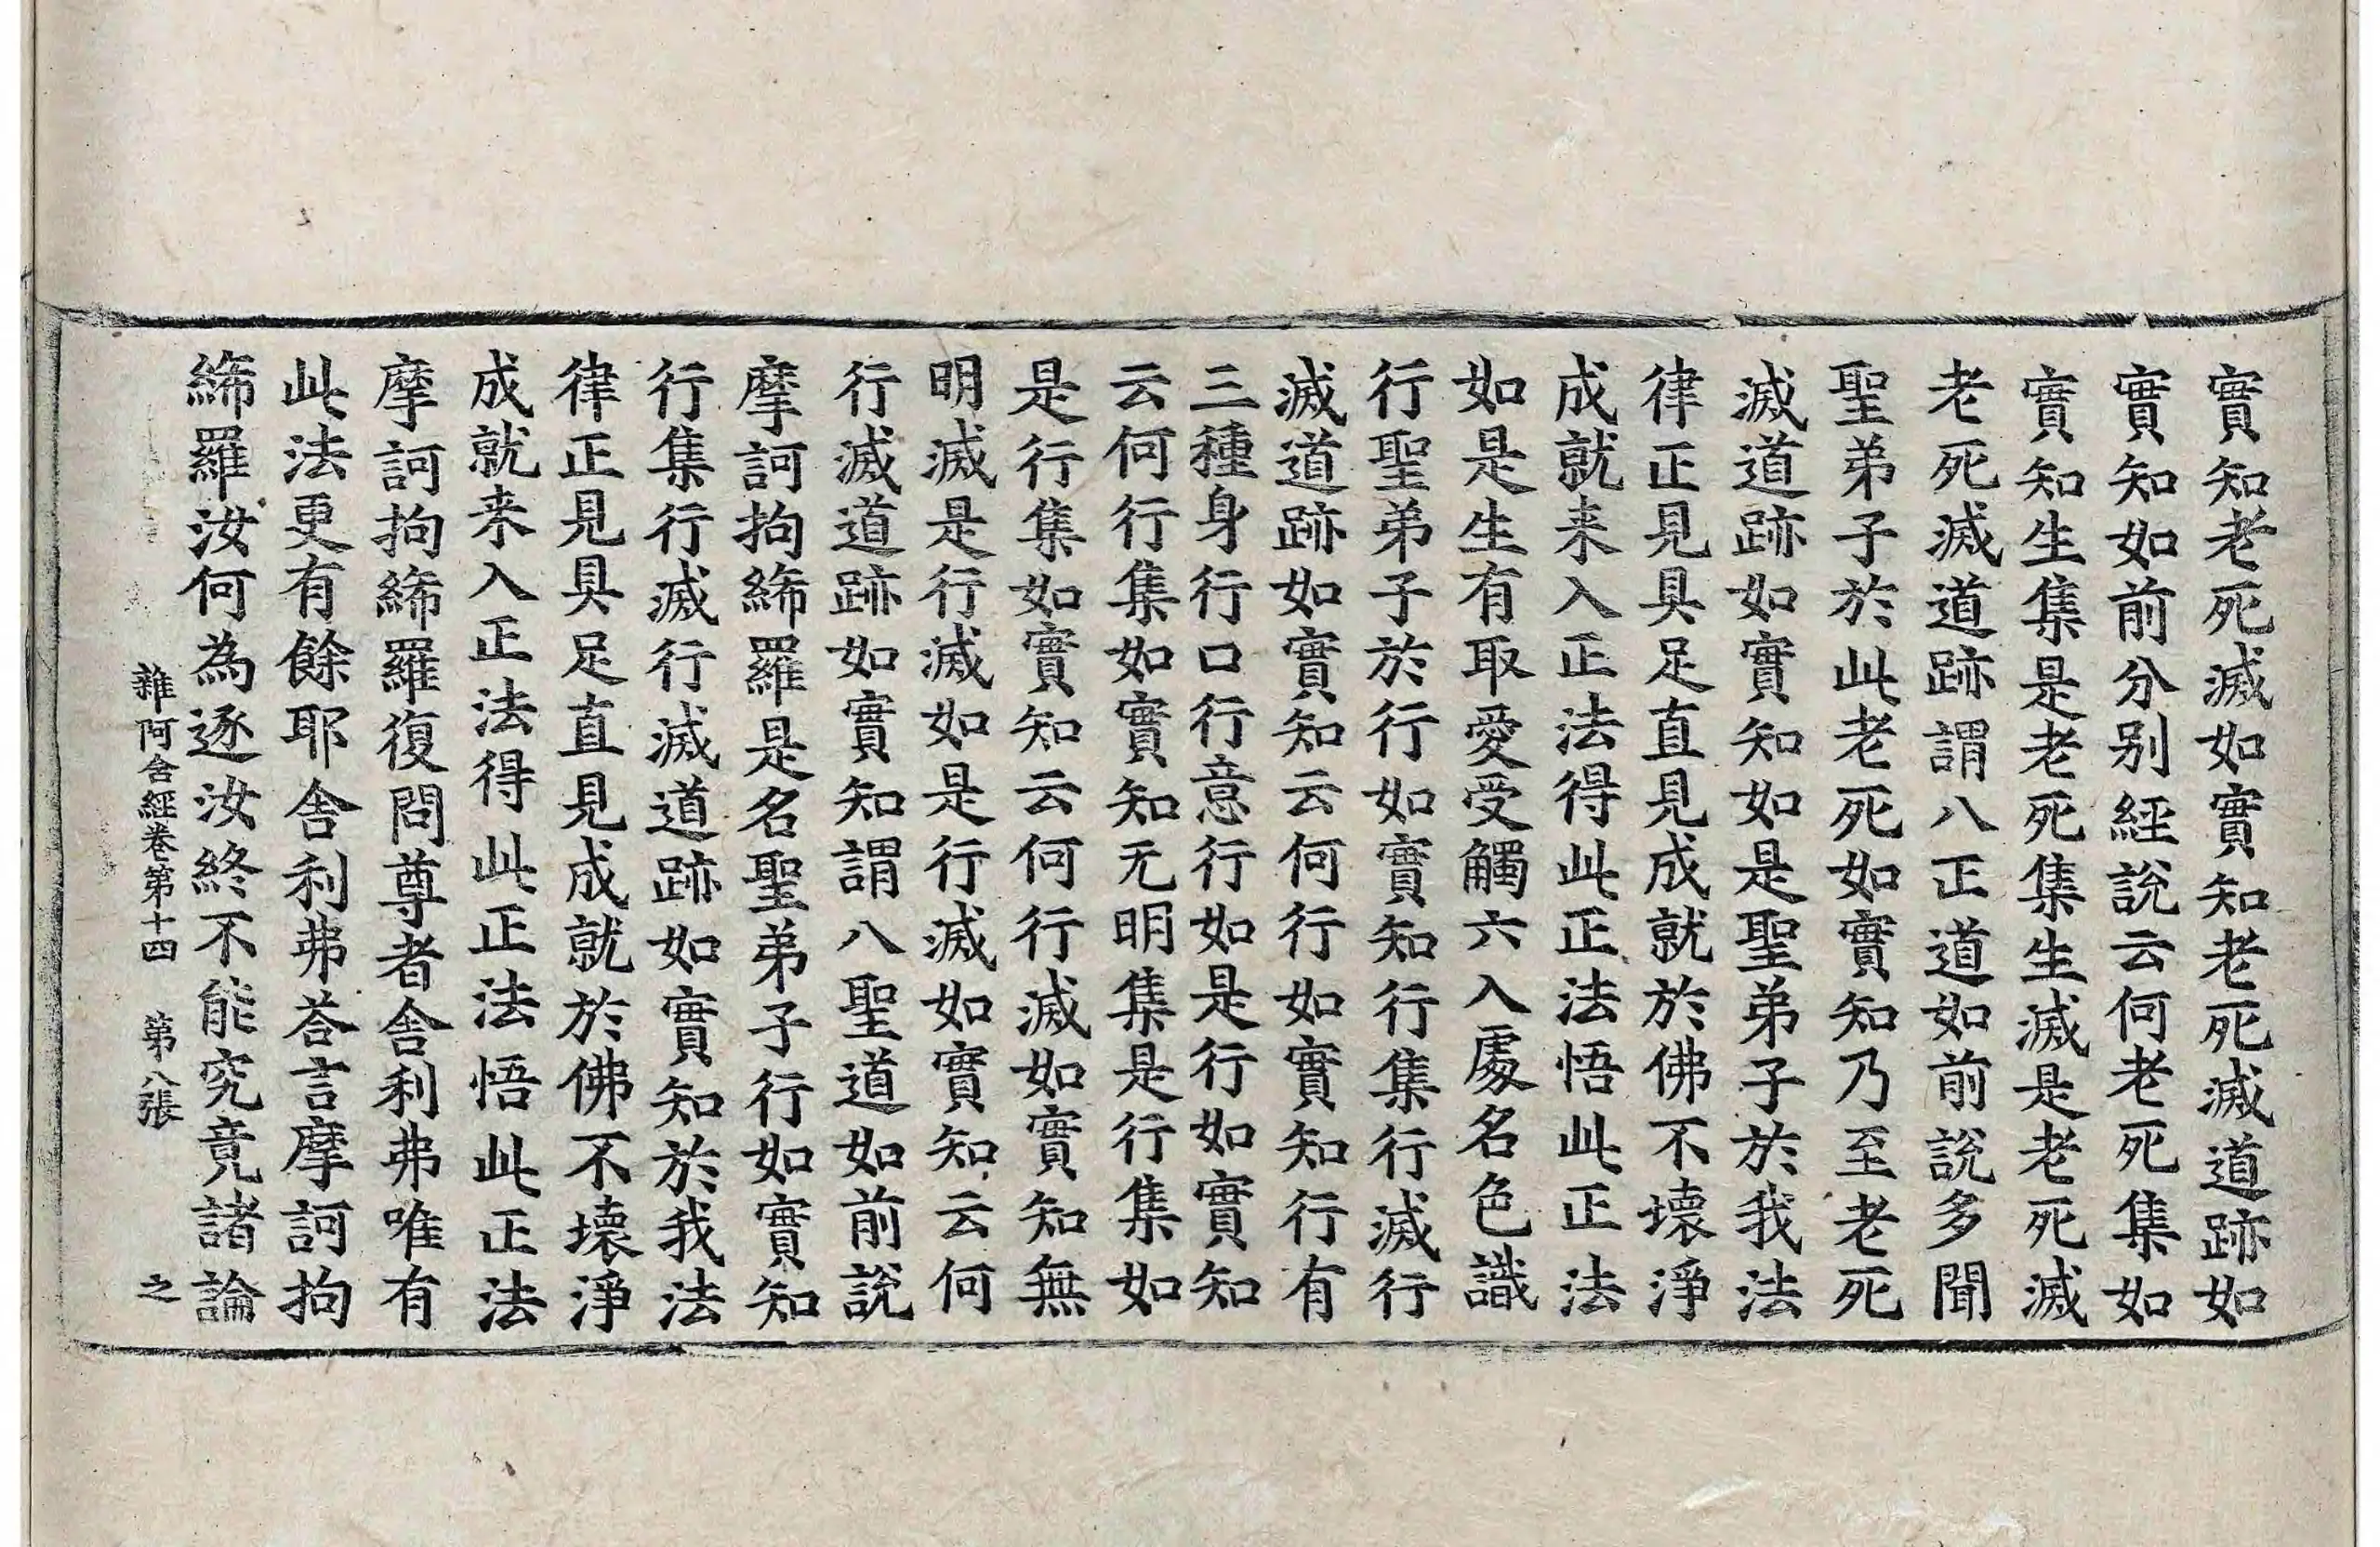 實知老死滅如實知老死滅道跡如
實知如前分别經說云何老死集如
實知生集是老死集生滅是老死滅
老死滅道跡謂八正道如前說多聞
聖弟子於此老死如實知乃至老死
滅道跡如實知如是聖弟子於我法
律正見具足直見成就於佛不壞淨
成就来入正法得此正法悟此正法
如是生有取愛受觸六入處名色識
行聖弟子於行如實知行集行滅行
滅道跡如實知云何行如實知行有
三種身行口行意行如是行如實知
云何行集如實知无明集是行集如
是行集如實知云何行滅如實知無
明滅是行滅如是行滅如實知云何
行滅道跡如實知謂八聖道如前說
摩訶拘絺羅是名聖弟子行如實知
行集行滅行滅道跡如實知於我法
律正見具足直見成就於佛不壞淨
成就来入正法得此正法悟此正法
摩訶拘絺羅復問尊者舍利弗唯有
此法更有餘耶舍利弗荅言摩訶拘
絺羅汝何為逐汝終不能究竟諸論
雜阿含經卷第十四 第八張 之